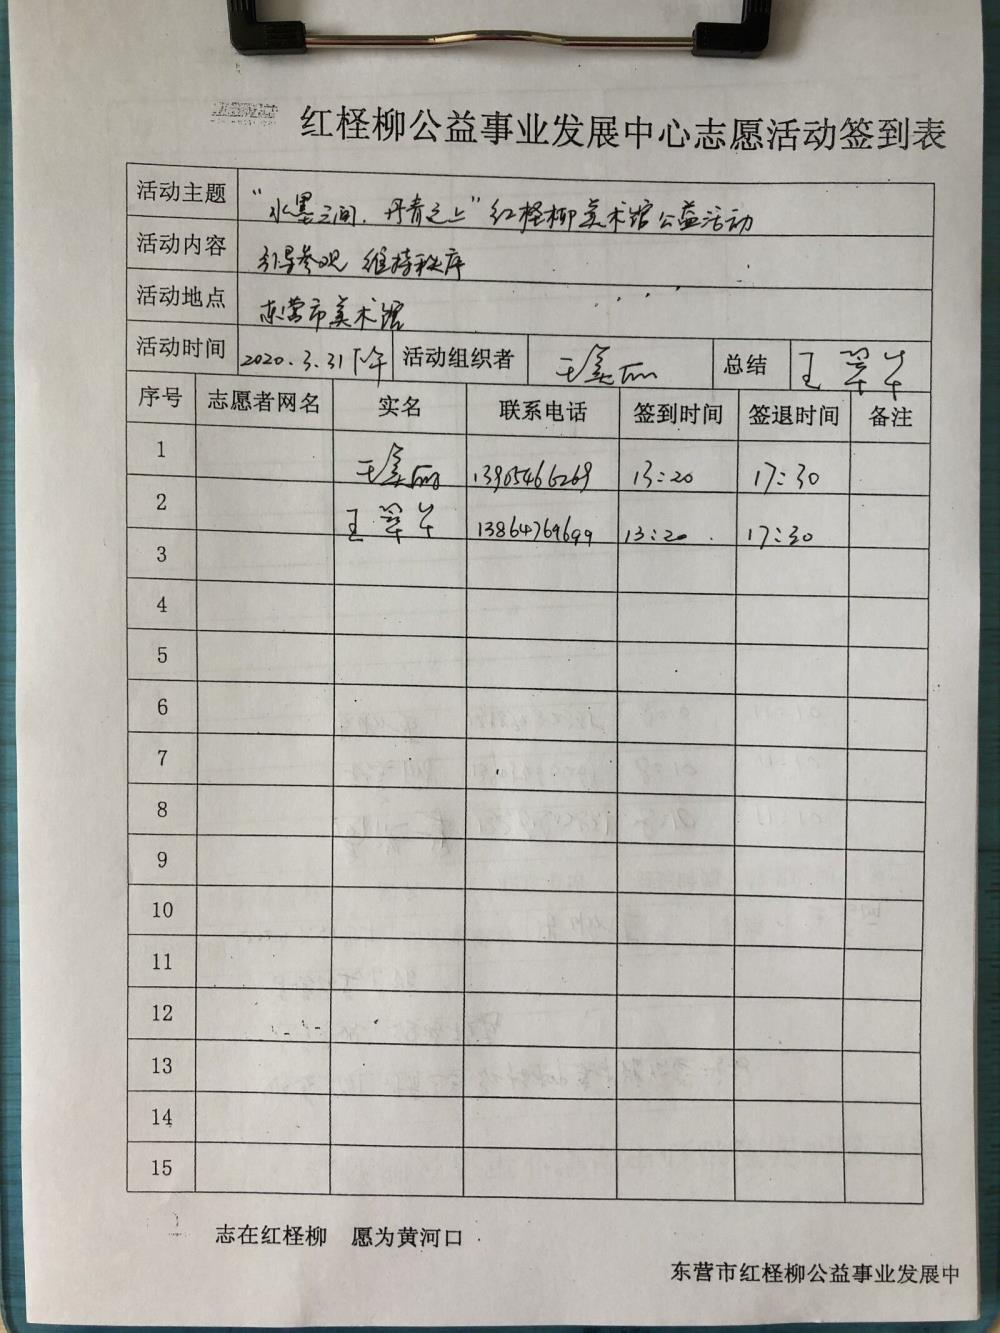 红柽柳公益事业发展中心志愿活动签到表
活动主题 “水墨之间.丹青之上”红柽柳美术馆公益活动
活动内容 引导参观 维持秩序
活动地点 东营市美术馆
活动时间 2020.3.31下午 活动组织者 王美丽 总结 王翠华
序号 志愿者网名 实名 联系电话 签到时间 签退时间 备注
1 王美丽 13905466269 13:20 17:30
2 王翠华 13864769699 13:20 17:30
3
4
5
6
7
8
9
10
11
12
13
14
15
志在红柽柳 愿为黄河口
东营市红柽柳公益事业发展中